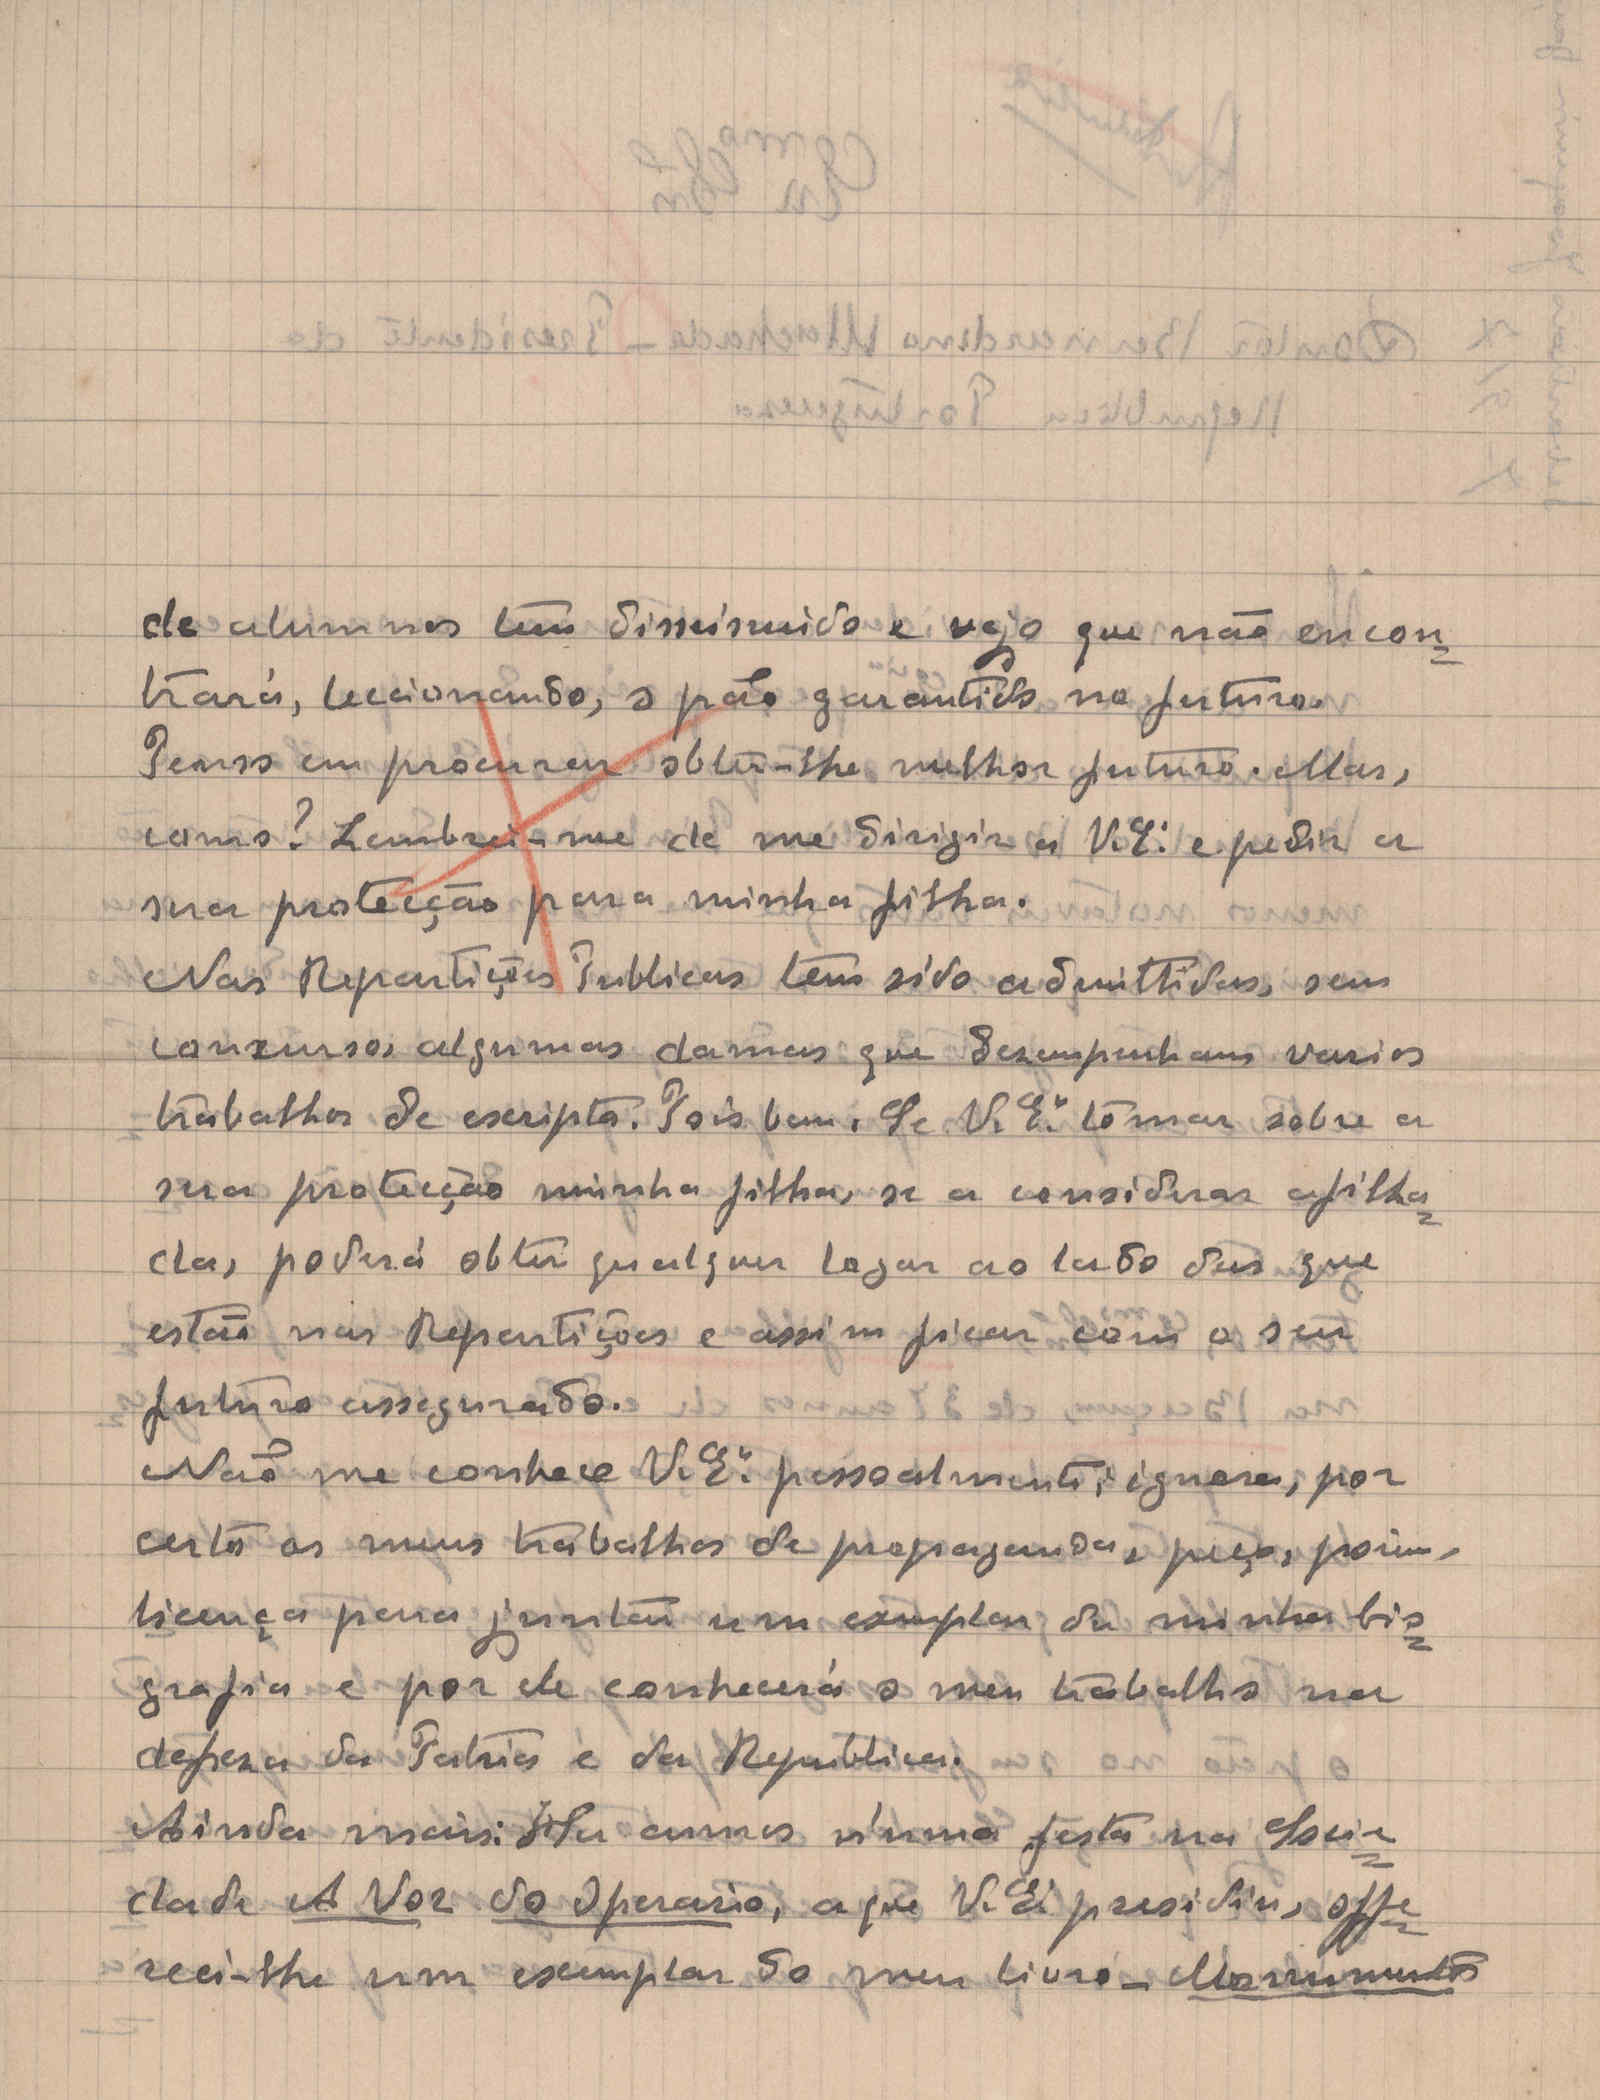 de alumnos tem dissismuido e vejo que não encon=
trará, leccionando, o pão garantido no futuro.
Penso em procurar obter-lhe melhor futuro. Mas,
como? Lembrei-me de me dirigir a V. Ex.ª e pedir a
sua protecção para minha filha.
Nas Repartições Publicas tem sido admittidas, sem
concurso, algumas damas que desempenham varios
trabalhos de escripta. Pois bem. Se V. Ex.ª tomar sobre a
sua protecção minha filha, se a considerar afilha=
da, poderá obter qualquer logar ao lado das que
estão nas Repartições e assim ficar com o seu
futuro assegurado.
Não me conhece V. Ex.ª pessoalmente; ignora, por
certo os meus trabalhos de propaganda, peço, porem,
licença para juntar um exemplar da minha bio=
grafia e por ele conhecerá o meu trabalho na
defeza da Patria e da Republica.
Ainda mais: Ha annos n'uma festa na Socie=
dade A Voz do Operario, a que V. Ex.ª presidiu, offe=
reci-lhe um exemplar do meu livro - Monumentos